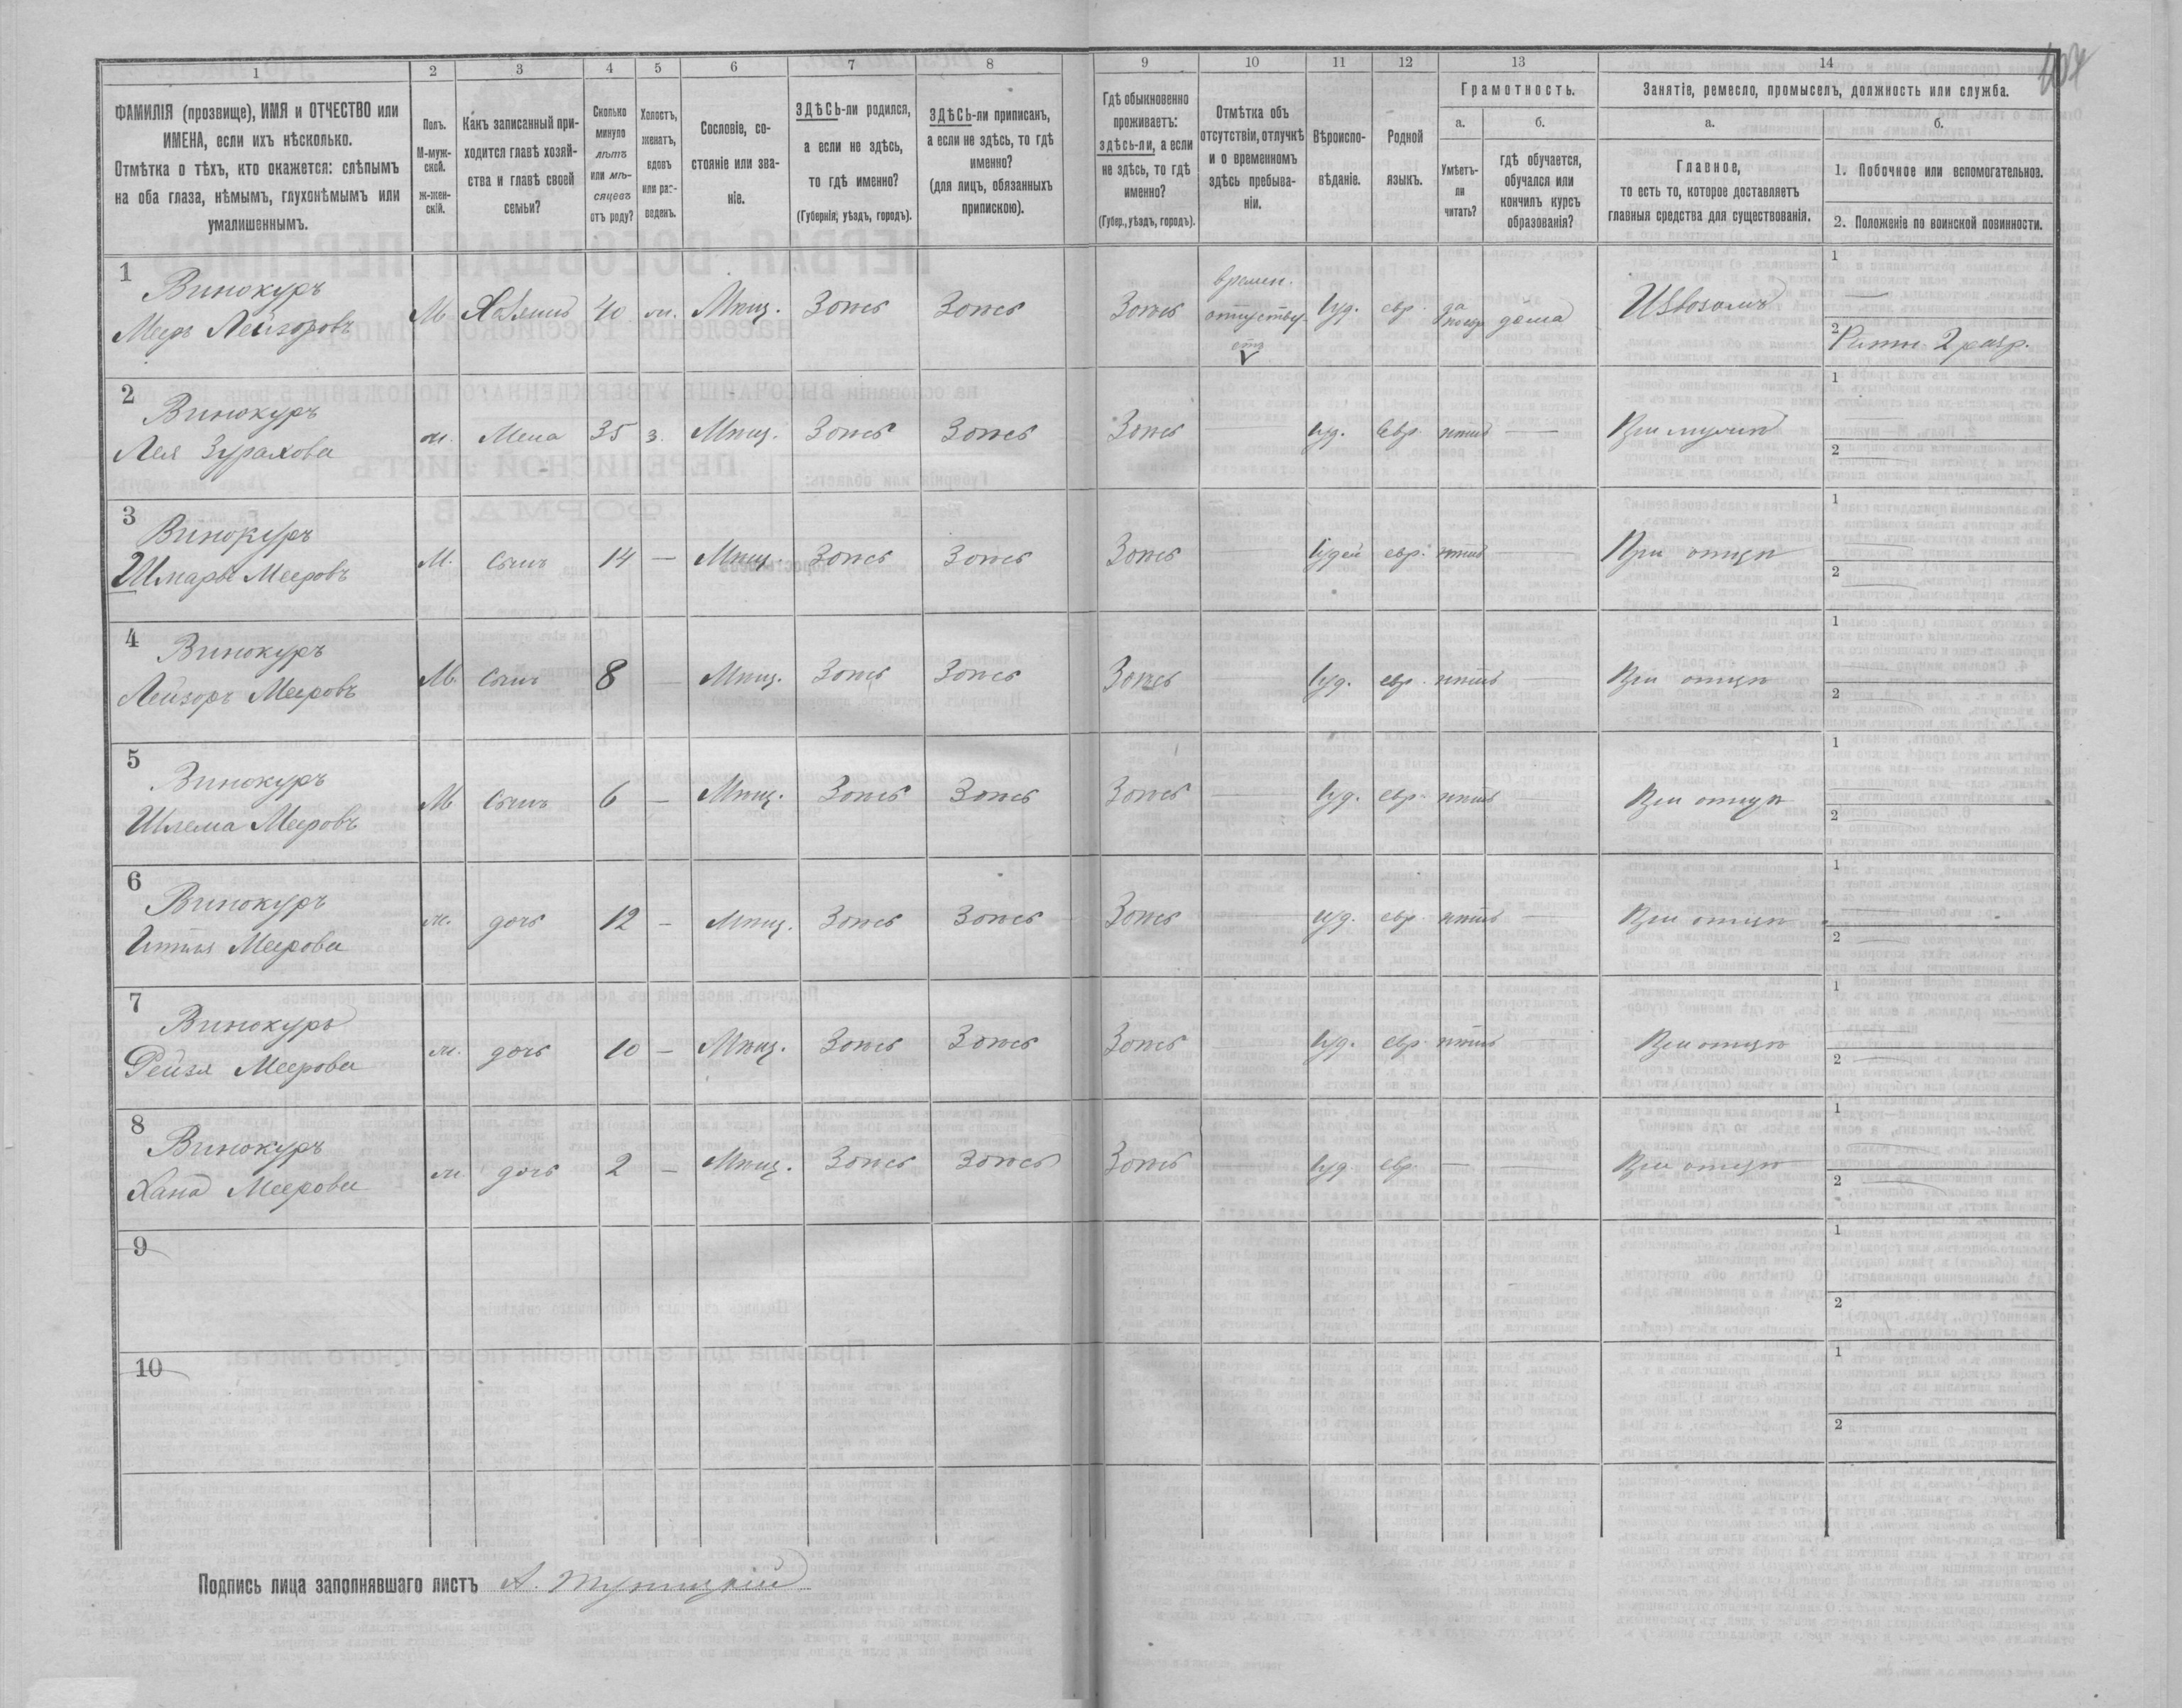 1 2 3 4 5 6 7 8 9 10 11 12 13 14
ФАМИЛІЯ (прозвище), ИМЯ и ОТЧЕСТВО или
ИМЕНА, если ихъ нѣсколько.
Отмѣтка о тѣхъ, кто окажется: слѣпымъ
на оба глаза, нѣмымъ, глухонѣмымъ или
умалишеннымъ.
Полъ.
М-муж-
ской.
ж-жен-
скій.
Какъ записанный при-
ходится главѣ хозяй-
ства и главѣ своей
семьи?
Сколько
минуло
лѣтъ
или мѣ-
сяцевъ
отъ роду?
Холостъ,
женатъ,
вдовъ
или раз-
веденъ.
Сословіе, со-
стояніе или зва-
ніе.
ЗДѢСЬ-ли родился,
а если не здѣсь,
то гдѣ именно?
(Губернія, уѣздъ, городъ).
ЗДѢСЬ-ли приписанъ,
а если не здѣсь, то гдѣ
именно?
(для лицъ, обязанныхъ
припискою).
Гдѣ обыкновенно
проживаетъ:
здѣсь-ли, а если
не здѣсь, то гдѣ
именно?
(Губер., уѣздъ, городъ).
Отмѣтка объ
отсутствіи, отлучкѣ
и о временномъ
здѣсь пребыва-
ніи.
Вѣроиспо-
вѣданіе.
Родной
языкъ.
Грамотность.
а.
Умѣетъ-
ли
читать?
б.
гдѣ обучается,
обучался или
кончилъ курсъ
образованія?
Занятіе, ремесло, промыселъ, должность или служба.
а.
Главное,
то есть то, которое доставляетъ
главныя средства для существованія.
б.
1. Побочное или вспомогательное.
2. Положеніе по воинской повинности.
1 Винокуръ
Меръ Лейзоровъ М Хозяинъ 40 ж. Мѣщ. Здѣсь Здѣсь Здѣсь времен. отсутству. Іуд. евр. да дома Извозомъ 1 —
2 Ратн. 2 разр.
2 Винокуръ
Лея ж. Жена 35 з. Мѣщ. Здѣсь Здѣсь Здѣсь — Іуд. Евр. нѣтъ — При мужѣ 1 — 2 —
3 Винокуръ
Шмарье Мееровъ М. Сынъ 14 — Мѣщ. Здѣсь Здѣсь Здѣсь — Іудей евр. нѣтъ — При отцѣ 1 — 2 —
4 Винокуръ
Лейзоръ Мееровъ М. Сынъ 8 — Мѣщ. Здѣсь Здѣсь Здѣсь — Іуд. евр. нѣтъ — При отцѣ 1 — 2 —
5 Винокуръ
Шлема Мееровъ М Сынъ 6 — Мѣщ. Здѣсь Здѣсь Здѣсь — Іуд. евр. нѣтъ — При отцѣ 1 — 2 —
6 Винокуръ
Итля Меерова ж. дочь 12 — Мѣщ. Здѣсь Здѣсь Здѣсь — Іуд. евр. нѣтъ — При отцѣ 1 — 2 —
7 Винокуръ
Рейзя Меерова ж. дочь 10 — Мѣщ. Здѣсь Здѣсь Здѣсь — Іуд. евр. нѣтъ — При отцѣ 1 — 2 —
8 Винокуръ
Хана Меерова ж. дочь 2 — Мѣщ. Здѣсь Здѣсь Здѣсь — Іуд. евр. — — При отцѣ 1 — 2 —
9 1 2
10 1 2
Подпись лица заполнявшаго листъ А.